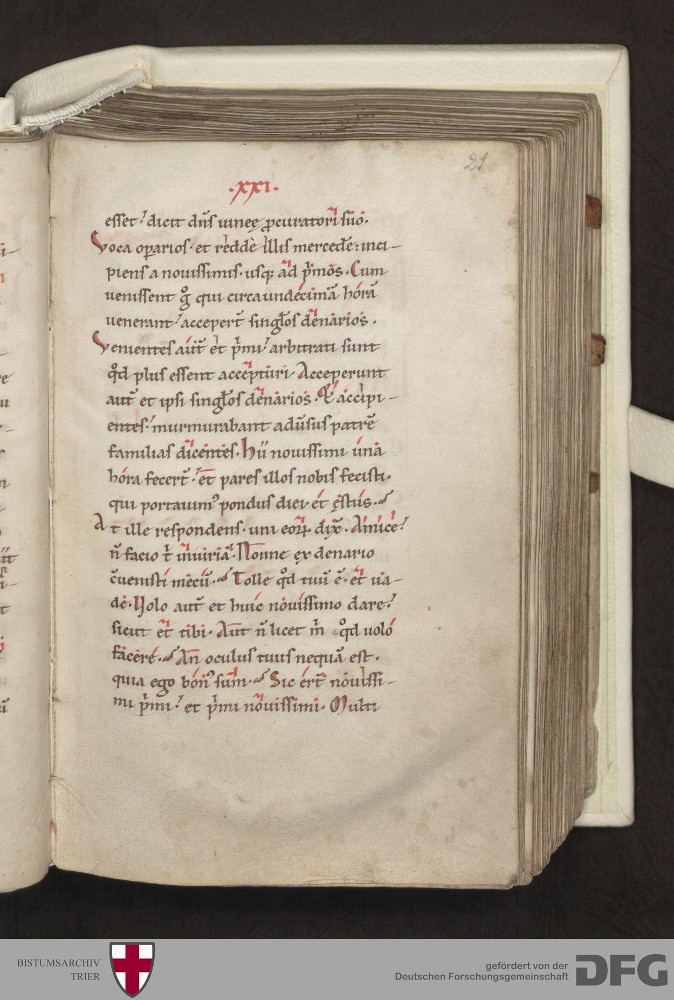 .xxi.
21
esset. dicit dn̄s uineę ꝓcuratori suo.
Voca oꝑarios. et redde illis mercedē. inci-
piens a nouissimis. usq; ad p̄mos. Cum
uenissent g̊ qui circa undecimā horā
uenerant. accepert̄ singłos denarios.
Venientes aūt et p̄mi. arbitrati sunt
qd̄ plus essent accepturi. Acceperunt
aūt et ipsi singłos denarios. Et accipi-
entes. murmurabant adūsus patrē
familias dicentes. Hii nouissimi una
hora fecert̄. et pares illos nobis fecisti.
qui portauimꝰ pondus diei et ęstus.
At ille respondens. uni eoꝝ dix̄. Amice.
n̄ facio t̄ iniuriā. Nonne ex denario
c̄uenisti mecū. Tolle qd̄ tuū ē. et ua-
de. Uolo aūt et huic nouissimo dare.
sicut et tibi. Aut n̄ licet m̄ qd̄ uolo
facere. An oculus tuus nequā est.
quia ego bonꝰ sum. Sic ert̄ nouissi-
mi p̄mi. et p̄mi nouissimi. Multi
BISTUMSARCHIV
TRIER
gefördert von der
Deutschen Forschungsgemeinschaft
DFG